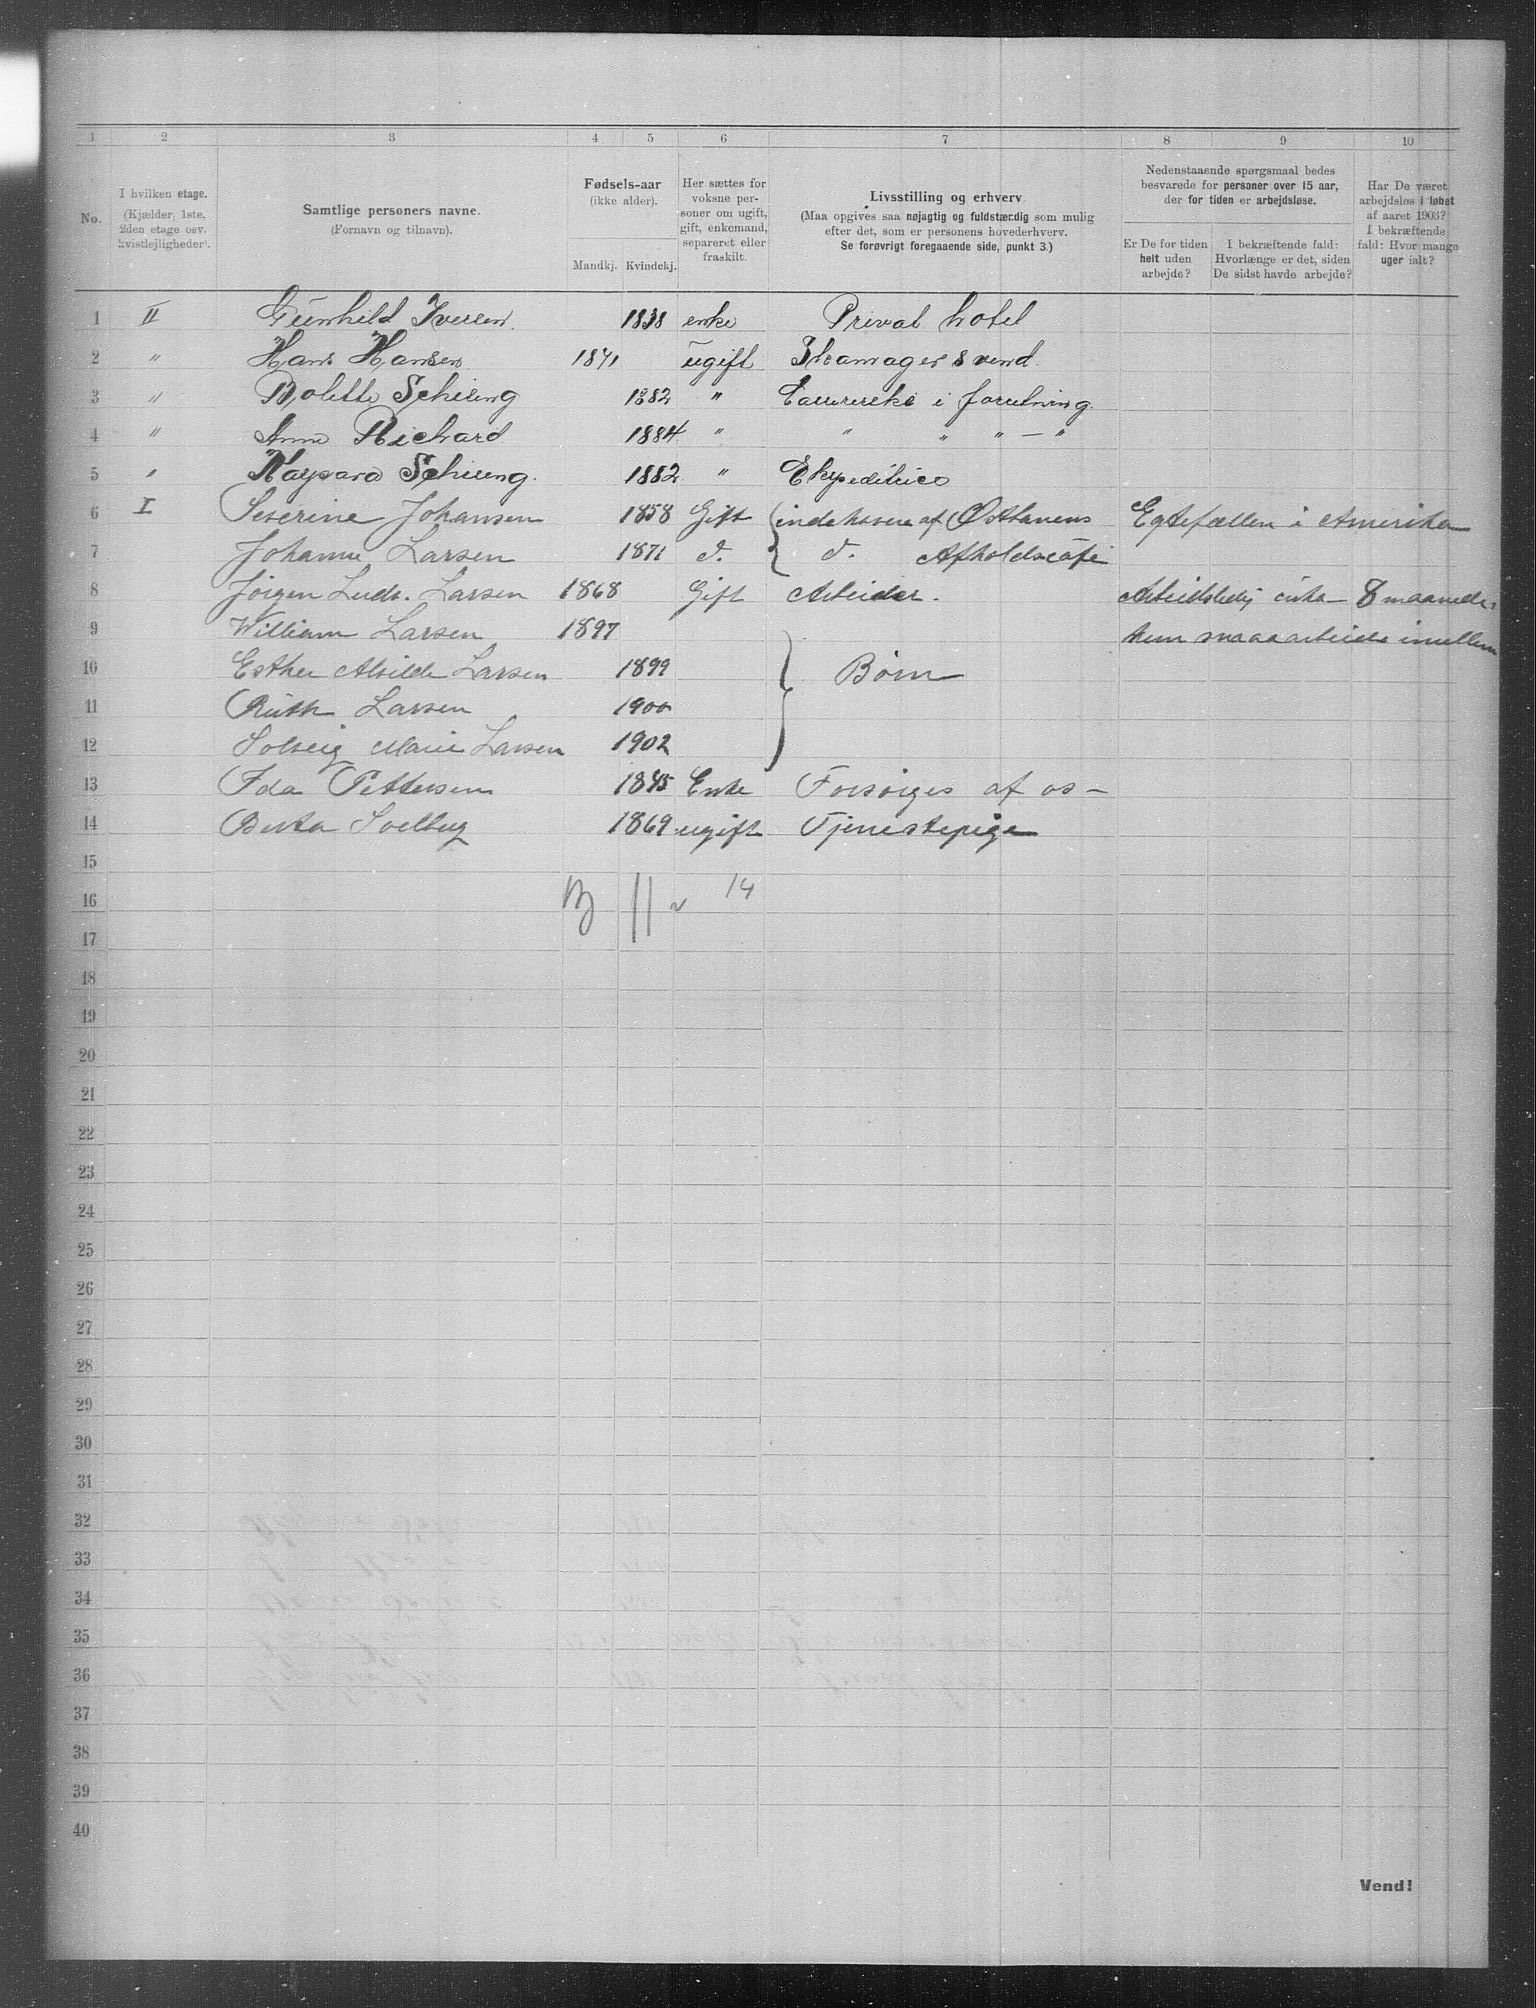 1 2 3 4 5 6 7 8 9 10
No.
I hvilken etage.
(Kjælder, 1ste,
2den etage osv.
kvistlejligheder).
Samtlige personers navne.
(Fornavn og tilnavn).
Fødsels-aar
(ikke alder).
Mandkj. Kvindekj.
Her sættes for
voksne per-
soner om ugift,
gift, enkemand,
separeret eller
fraskilt.
Livsstilling og erhverv.
(Maa opgives saa nøjagtig og fuldstændig som mulig
efter det, som er personens hovederhverv.
Se forøvrigt foregaaende side, punkt 3.)
Nedenstaaende spørgsmaal bedes
besvarede for personer over 15 aar,
der for tiden er arbejdsløse.
Er De for tiden
helt uden
arbejde?
I bekræftende fald:
Hvorlænge er det, siden
De sidst havde arbejde?
Har De været
arbejdsløs i løbet
af aaret 1903?
I bekræftende
fald: Hvor mange
uger ialt?
1 II Gunhild Iversen. 1838 enke Privat hotel
2 " Hans Hansen 1871 ugift Skomagersvend.
3 " Bolette Schieng 1882 " i forretning.
4 " Anna Richard 1884 " " " " — "
5 " Schieng. 1882 " Ekspeditrice
6 I Severine Johansen 1858 Gift indehavere af Østkanens Egtefællen i Amerika
7 Johanne Larsen 1871 d. d. Afholdscafe
8 Jørgen Ludv. Larsen 1868 Gift Arbeider. Arbeidsledig cirka 8 maaneder
9 William Larsen 1897 kun smaaarbeide imellem
10 Esther Alvilde Larsen 1899 Børn
11 Ruth Larsen 1900
12 Solveig Marie Larsen 1902
13 Ida Pettersen 1845 Enke Forsørges af os —
14 Berta Solberg 1869 ugift Tjenestepige
15
16 B || 14
17
18
19
20
21
22
23
24
25
26
27
28
29
30
31
32
33
34
35
36
37
38
39
40
Vend!